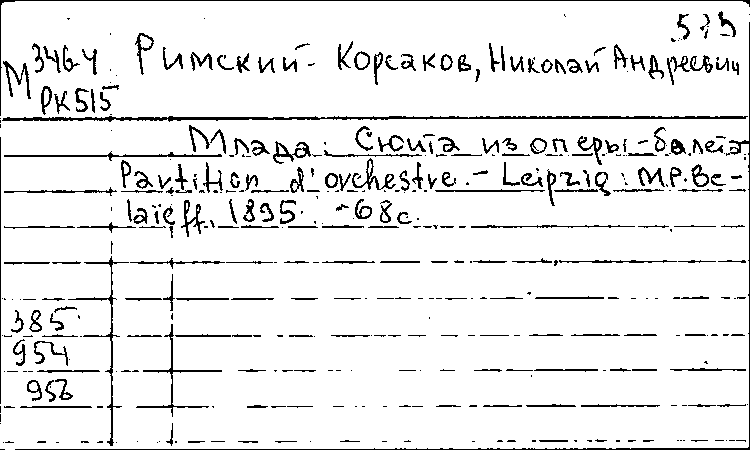 579
М 346-4 Римский-Корсаков, Николай Андреевич
РК515
Млада: Сюита из оперы-балета
Partition d'orchestre. - Leipzig: M.P. Be-
laïeff, 1895. - 68 с.
385
954
956